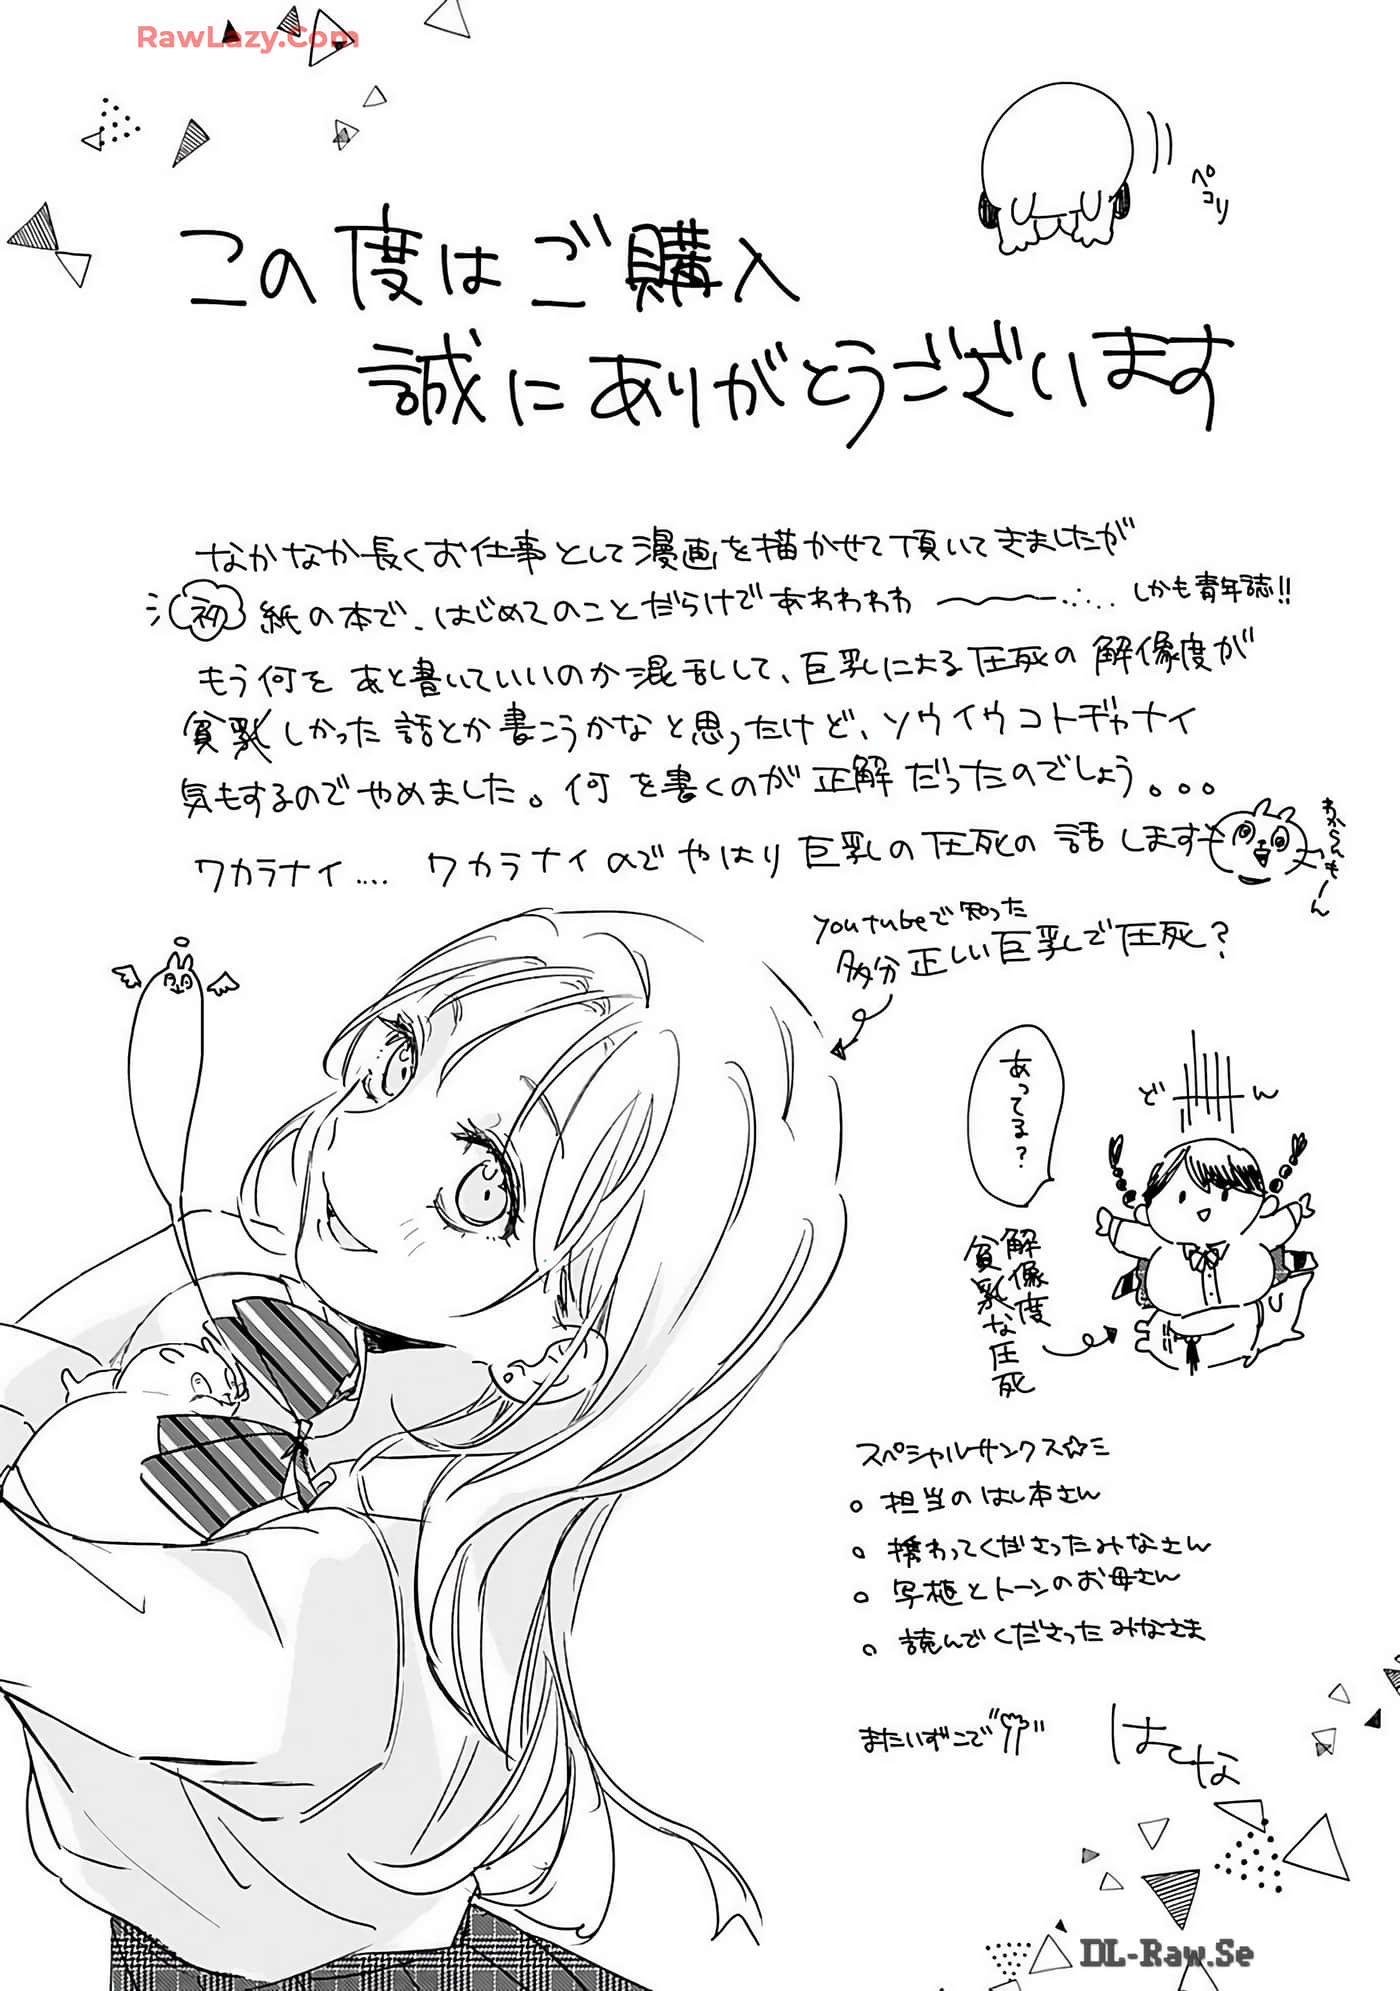 RawLazy.Com
ペコリ
この度はご購入
誠にありがとうございます
なかなか長くお仕事として漫画を描かせて頂いてきましたが
初 紙の本で、はじめてのことだらけであわわわわ しかも青年誌!!
もう何を あと書いていいのか混乱して、巨乳による圧死の解像度が
貧乳しかった話とか書こうかなと思ったけど、ソウイウコトヂャナイ
気もするのでやめました。何を書くのが正解だったのでしょう。。。
ワカラナイ.... ワカラナイのでやはり巨乳の圧死の話します
わからんもーん
youtubeで知った
多分正しい巨乳で圧死?
あってる?
どーん
解像度
貧乳な圧死
スペシャルサンクス☆ミ
。担当のはし本さん
。携わってくださったみなさん
。写植とトーンのお母さん
。読んでくださったみなさま
またいずこで
はてな
DL-Raw.Se